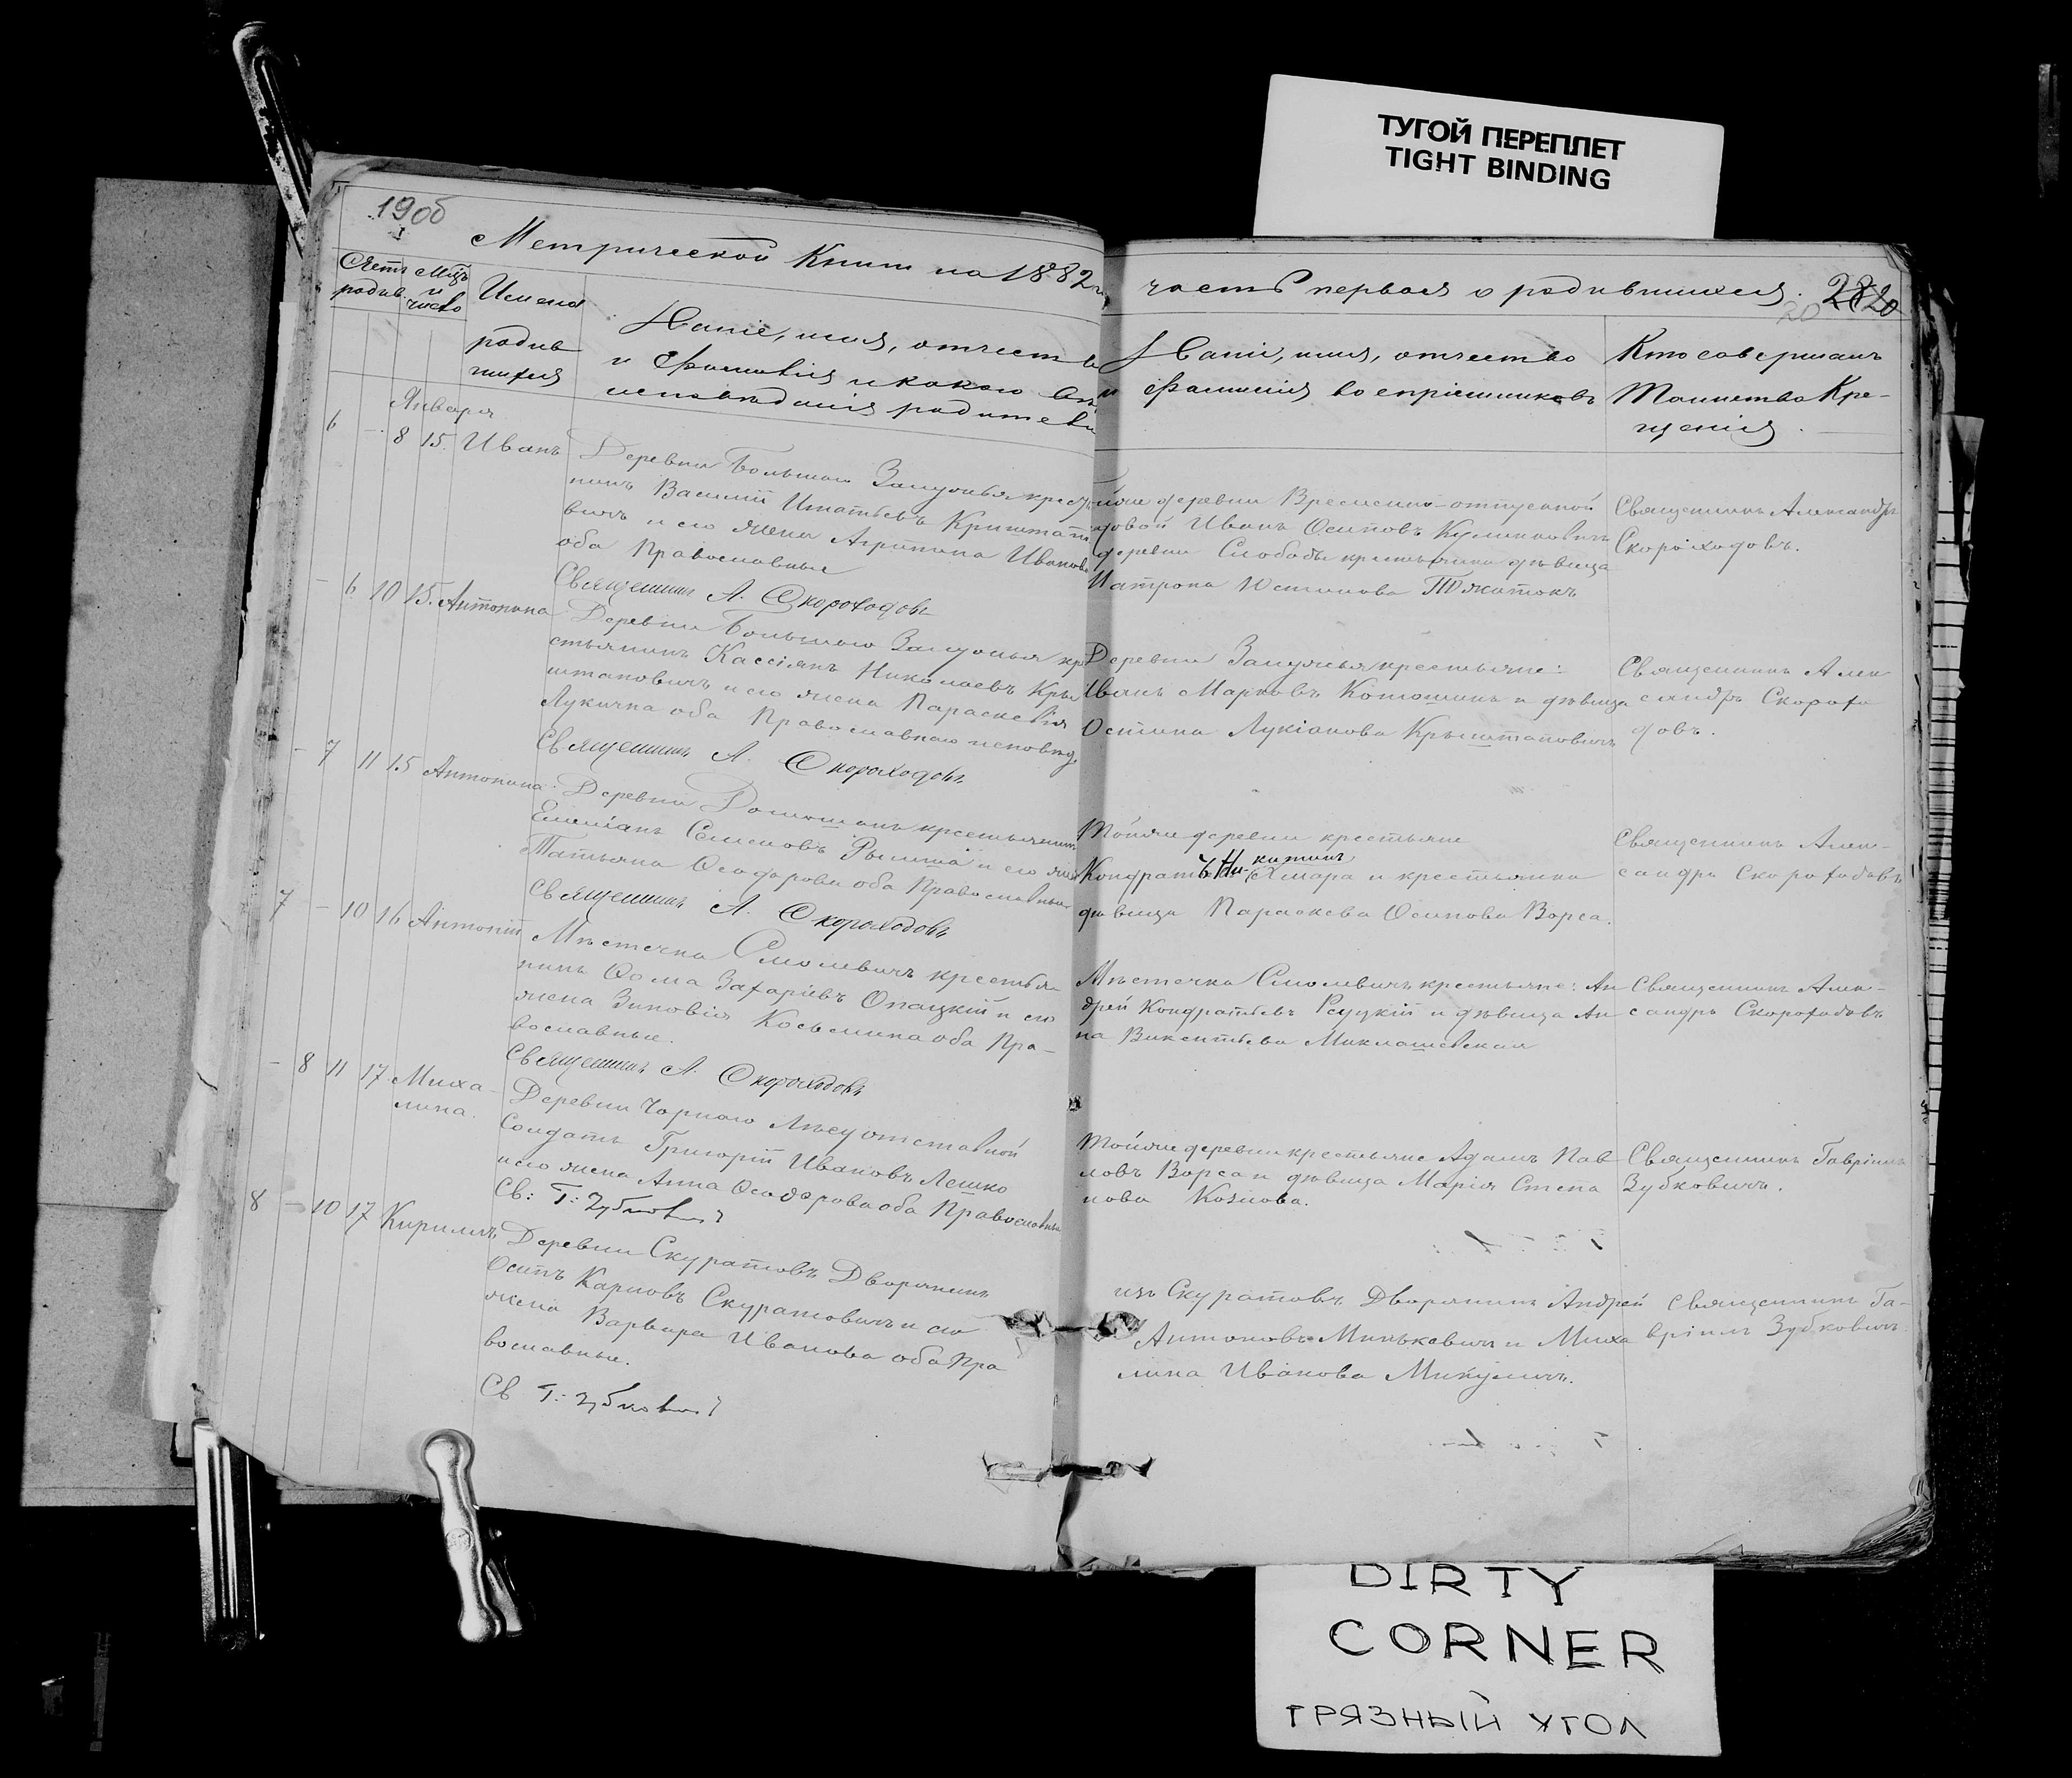 ТУГОЙ ПЕРЕПЛЕТ
TIGHT BINDING
19об
Метрической Книги на 1882 г.
часть первая о родившихся. 20
Счетъ родив.
Мцъ и число
Имена родившихся
Званіе, имя, отчество
и фамилія и какого
исповѣданія родители
Званіе, имя, отчество
и фамилія воспріемниковъ
Кто совершалъ
Таинство Кре-
щенія.
Января
6 - 8 15 Иванъ
Деревни Большого Залужья кресть
нинъ Василій Игнатьевъ Криштапо
вичъ и его жена Агрипина Иванова
оба Православные
Священникъ А. Скороходовъ
Тойже деревни Временно-отпускной
рядовой Иванъ Осиповъ
деревни Слободы крестьянка дѣвица
Матрона Юстинова
Священникъ Александръ
Скороходовъ.
- 6 10 15. Антонина
Деревни Большого Залужья кре
стьянинъ Кассіянъ Николаевъ Кры
штаповичъ и его жена Параскевія
Лукична оба Православнаго исповѣд.
Священникъ А. Скороходовъ
Деревни Залужья крестьяне:
Иванъ Марковъ Котошинъ и дѣвица
Лукіанова Крыштаповичъ
Священникъ Алек
сандръ Скорохо
довъ.
- 7 11 15 Антонина
Деревни крестьянинъ
Емеліанъ Семеновъ и его жена
Татьяна Ѳеодорова оба Православные
Священникъ А. Скороходовъ
Тойже деревни крестьяне
Кондратъ Никитинъ Хмара и крестьянка
дѣвица Параскева Осипова Ворса.
Священникъ Алек-
сандръ Скороходовъ
7 - 10 16 Антоній
Мѣстечка Смолевичъ крестья-
нинъ Ѳома Захаріевъ Опацкій и его
жена Зиновія Косьмина оба Пра-
вославные.
Священникъ А. Скороходовъ
Мѣстечка Смолевичъ крестьяне: Ан
дрей Кондратьевъ Рсуцкій и дѣвица Ан
на Викентьева Миклашевская
Священникъ Алек-
сандръ Скороходовъ
- 8 11 17 Миха-
лина.
Деревни Чорнаго Лѣсу отставной
Солдатъ Григорій Ивановъ Лешко
и его жена Анна Ѳеодорова оба Православные
Св: Г: Зубковичъ
Тойже деревни крестьяне Адамъ Пав
ловъ Ворса и дѣвица Марія Степа
нова Козлова.
Священникъ Гавріилъ
Зубковичъ.
8 - 10 17 Кириллъ
Деревни Скуратовъ Дворянинъ
Осипъ Карповъ Скуратовичъ и его
жена Варвара Иванова оба Пра
вославные.
Св Г: Зубковичъ
изъ Скуратовъ Дворянинъ Андрей
Антоновъ Минькевичъ и Миха
лина Иванова Микуличъ.
Священникъ Га-
вріилъ Зубковичъ
DIRTY
CORNER
ГРЯЗНЫЙ УГОЛ